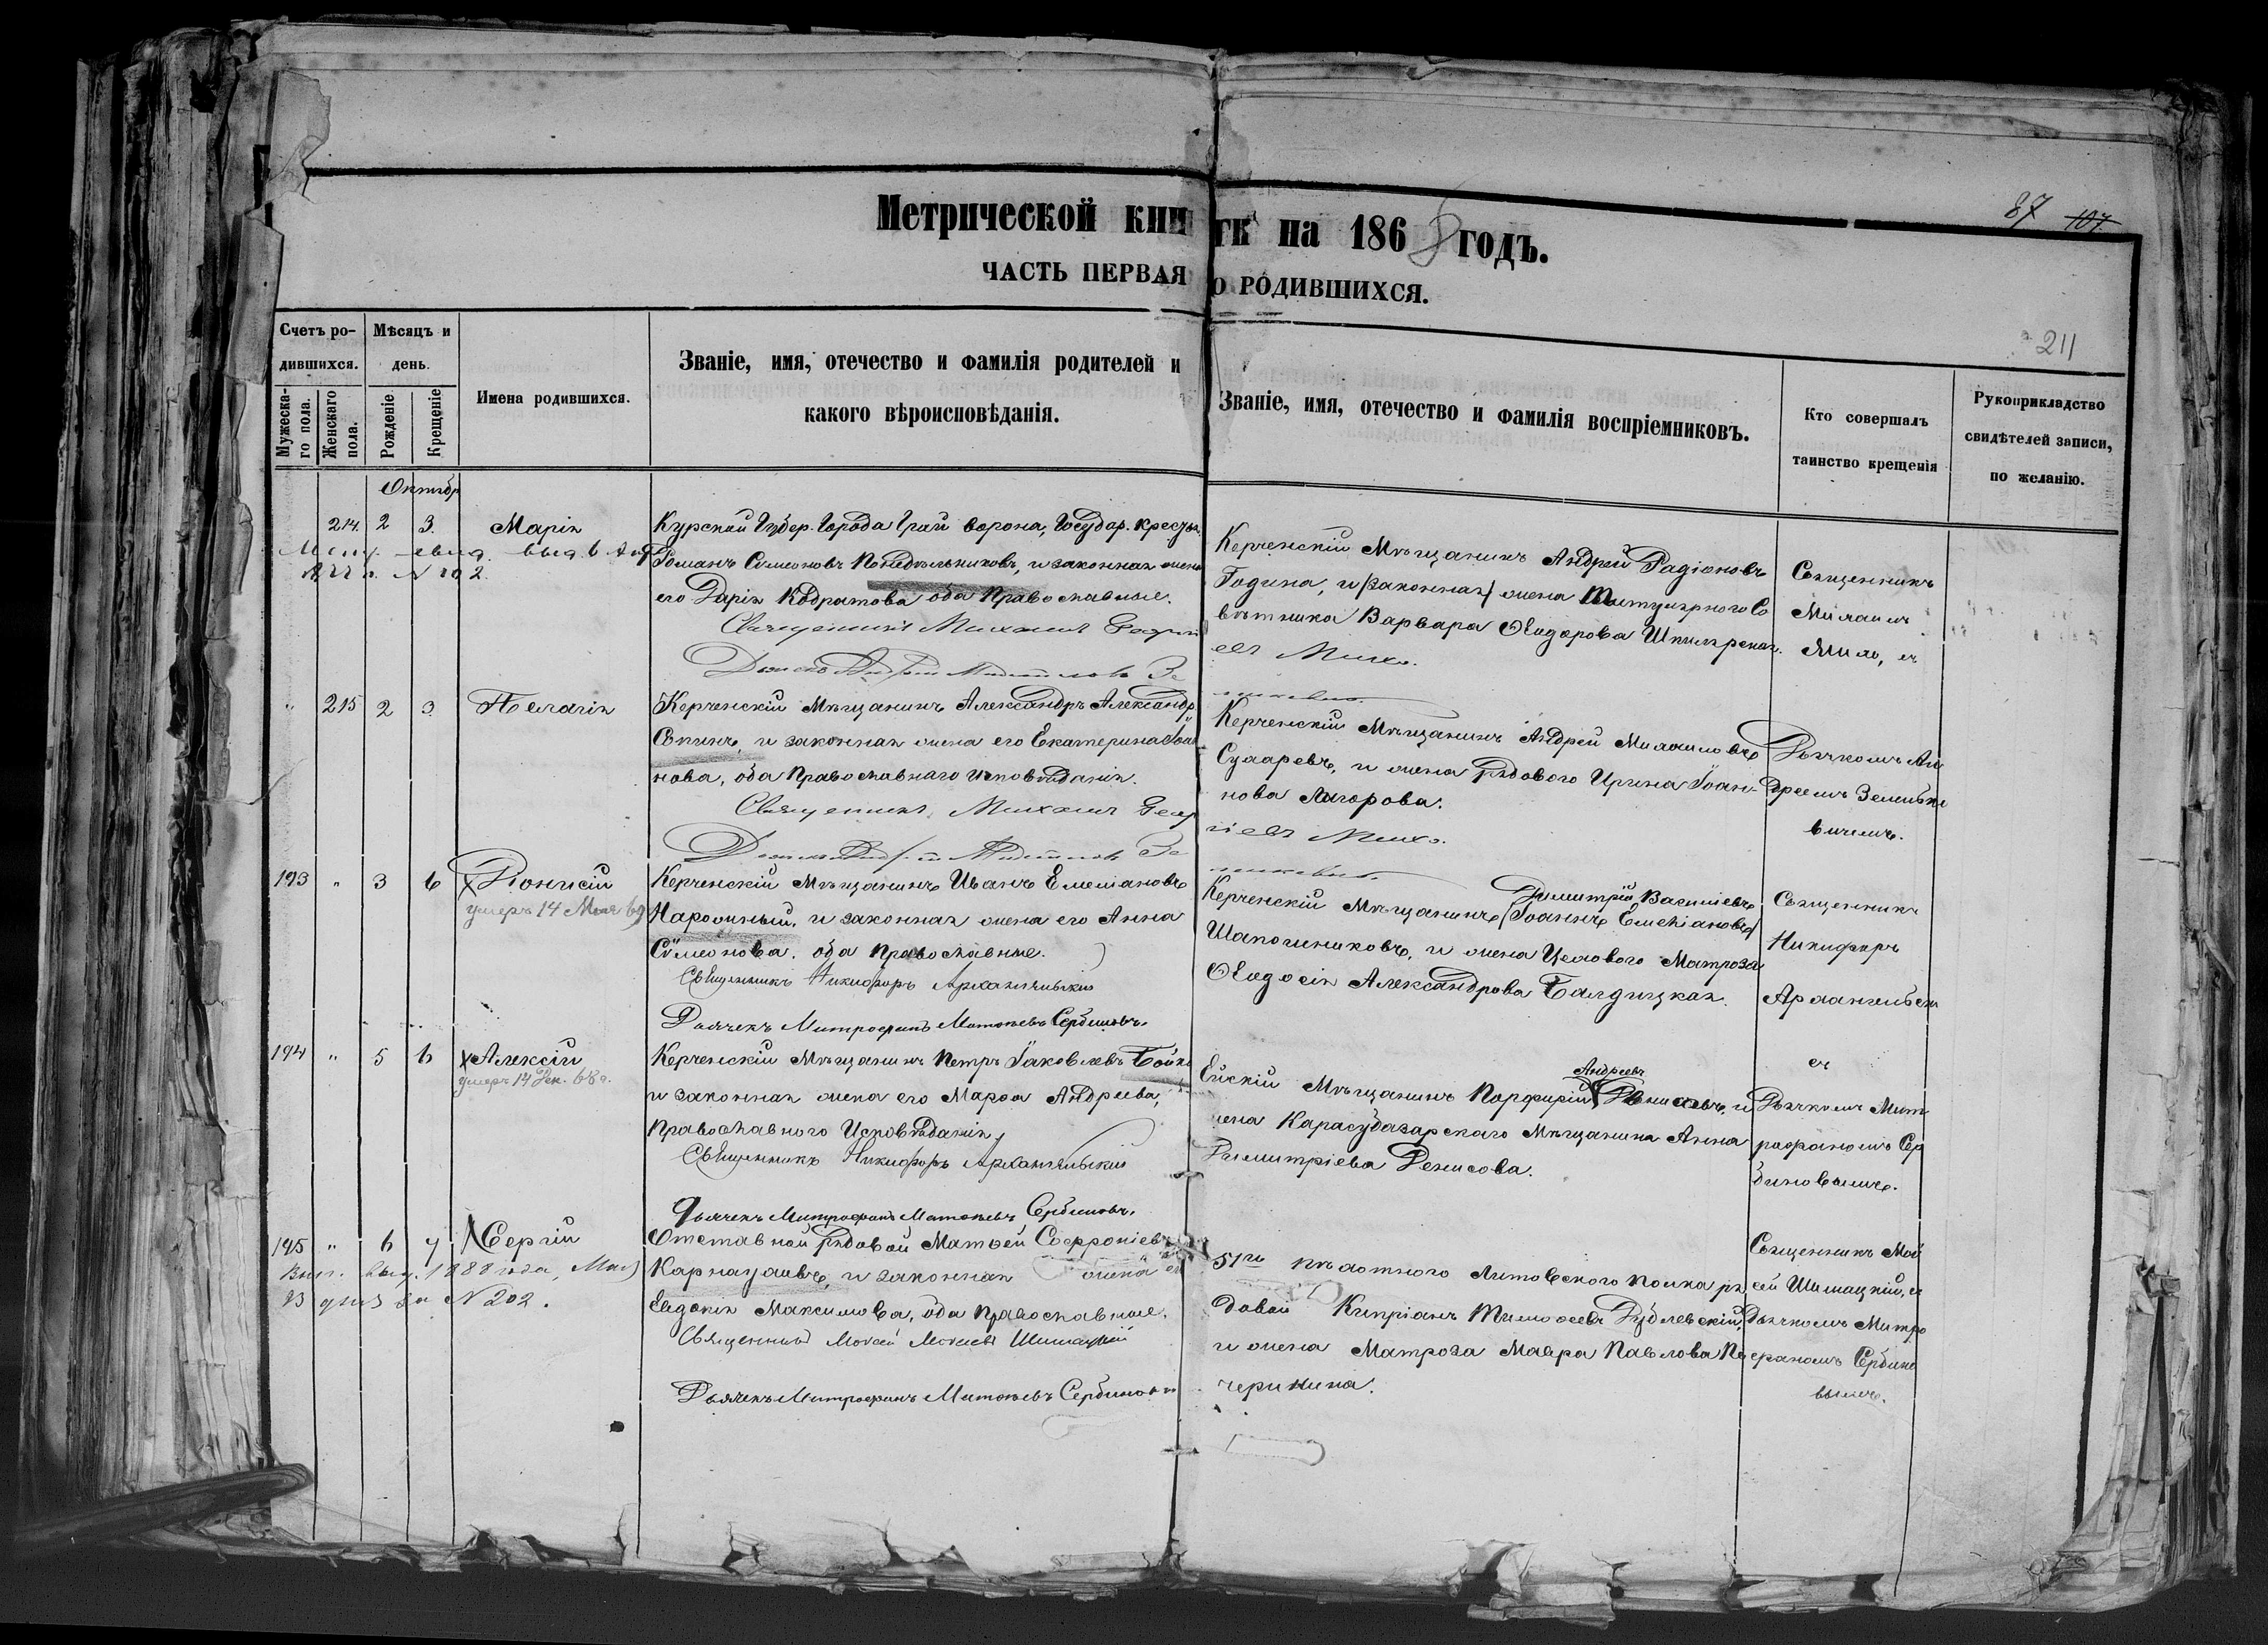 87 107
Метрической книгѣ на 1868 годъ.
ЧАСТЬ ПЕРВАЯ О РОДИВШИХСЯ.
211
Счетъ ро-
дившихся.
Мужеска-
го пола.
Женскаго
пола.
Мѣсяцъ и
день.
Рожденіе.
Крещеніе.
Имена родившихся.
Званіе, имя, отечество и фамилія родителей и
какого вѣроисповѣданія.
Званіе, имя, отечество и фамилія воспріемниковъ.
Кто совершалъ
таинство крещенія
Рукоприкладство
свидѣтелей записи,
по желанію.
Октябр
214. 2 3. Марія
Курской Губер. Города Грай ворона, Государ. крестьян.
Романъ Симеоновъ Понедѣльниковъ, и законная жена
его Дарія Кодратова оба Православные.
Священникъ Михаилъ
Керченскій Мѣщанинъ Андрей Радіоновъ
Година, и (законная) жена Титулярного Со
вѣтника Варвара Ѳеодорова
Священникъ
Михаилъ
" 215 2 3 Пелагія
Керченскій Мѣщанинъ Александръ Александр.
и законная жена его Екатерина Іоан
нова, оба Православнаго исповѣданія.
Священникъ Михаилъ Геор
гіевъ
Керченскій Мѣщанинъ Андрей Михаиловъ
Сухаревъ, и жена рядового Ирина Іоан-
нова
Дьячкомъ Ан
дреемъ Зеньке
вичемъ.
193 " 3 6 Діонисій
умеръ 14 Мая 69
Керченскій Мѣщанинъ Иванъ Емеліановъ
и законная жена его Анна
Сѵмеонова. оба Православные.
Священникъ Никифоръ Архангельскій
Дьячекъ Митрофанъ Матѳеевъ Сербиновъ.
Димитрій Васильевъ
Керченскій Мѣщанинъ (Іоаннъ Емеліановъ)
Шапошниковъ, и жена Целового Матроза
Ѳеодосія Александрова
Священникъ
Никифоръ
Архангельскі
194 " 5 6 Алексій
умеръ 14 Дек. 68 г.
Керченскій Мѣщанинъ Петръ Іаковлевъ Бойко
и законная жена его Марѳа Андреева,
Православного Исповѣданія,
Священникъ Никифоръ Архангельскій
Дьячекъ Митрофанъ Матѳеевъ Сербиновъ.
Андреевъ
Ейскій Мѣщанинъ Порфирій Денисовъ, и
жена Карасубазарскаго Мѣщанина Анна
Димитріева Денисова.
съ
Дьячкомъ Мит
рофаномъ Сер
биновымъ.
195 " 6 7 Сергій
1888 года, Мая
13 дня за N 202.
Отставной рядовой Матѳей Софроніевъ
Карнауховъ, и законная жена его
Евдокія Максимова, оба Православные.
Священникъ Моисей Моисеевъ Шишацкій
Дьячекъ Митрофанъ Матѳеевъ Сербиновъ
51го пѣхотного Литовского полка ря
довой Кипріанъ Тимоѳеевъ
и жена Матроза Мавра Павлова Пе
черикина.
Священникъ Мои
сей Шишацкій, съ
Дьячкомъ Митро
фаномъ Сербино
вымъ.